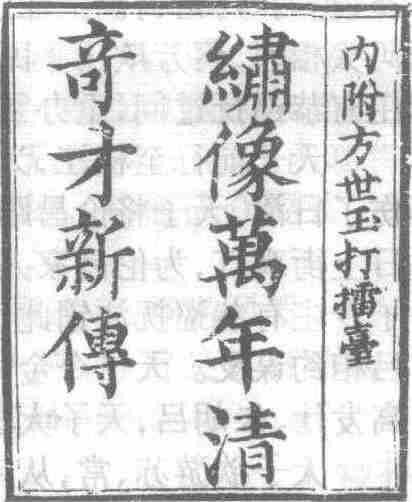 內附方世玉打擂臺
繡像萬年清
奇才新傳